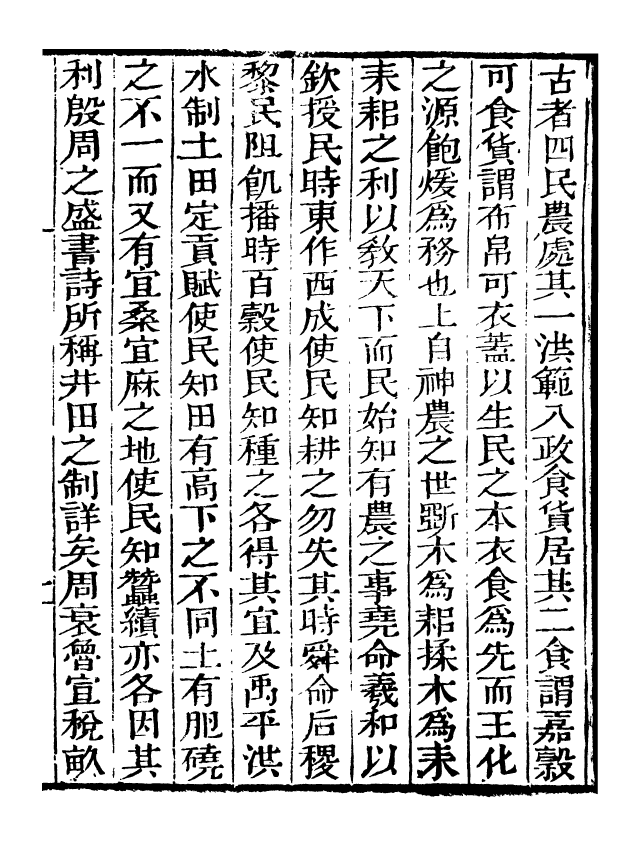 古者四民農處其一洪範八政食貨居其二食謂嘉穀
可食貨謂布帛可衣蓋以生民之本衣食爲先而王化
之源飽煖爲務也上自神農之世斲木爲耜揉木爲耒
耒耜之利以敎天下而民始知有農之事堯命羲和以
欽授民時東作西成使民知耕之勿失其時舜命后稷
黎民阻飢播時百穀使民知種之各得其宜及禹平洪
水制土田定貢賦使民知田有高下之不同土有肥磽
之不一而又有宜桑宜麻之地使民知蠶績亦各因其
利殷周之盛書詩所稱井田之制詳矣周衰魯宣稅畝